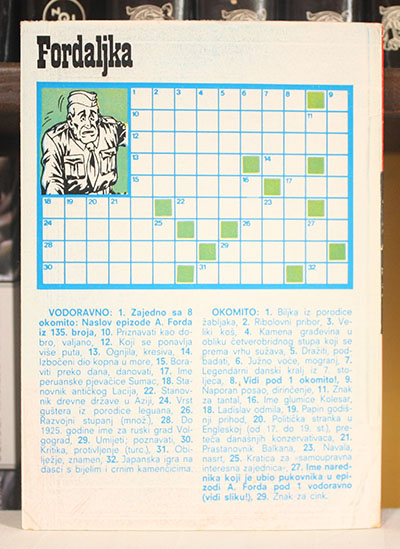 Fordaljka
1 2 3 4 5 6 7 8 9
10 11
12
13 14
15 16 17
18 19 20 21 22 23
24 25 26 27
28 29
30 31 32
VODORAVNO: 1. Zajedno sa 8
okomito: Naslov epizode A. Forda
iz 135. broja, 10. Priznavati kao do-
bro, valjano, 12. Koji se ponavlja
više puta, 13. Ognjila, kresiva, 14.
Izbočeni dio kopna u more, 15. Bora-
viti preko dana, danovati, 17. Ime
peruanske pjevačice Sumac, 18. Sta-
novnik antičkog Lacija, 22. Stanov-
nik drevne države u Aziji, 24. Vrst
guštera iz porodice leguana, 26.
Razvojni stupanj (množ.), 28. Do
1925. godine ime za ruski grad Vol-
gograd, 29. Umijeti; poznavati, 30.
Kritika, protivljenje (turc.), 31. Obi-
lježje, znamen, 32. Japanska igra na
dasci s bijelim i crnim kamenčićima.
OKOMITO: 1. Biljka iz porodice
žabljaka, 2. Ribolovni pribor, 3. Ve-
liki koš, 4. Kamena građevina u
obliku četverobridnog stupa koji se
prema vrhu sužava, 5. Dražiti, pod-
badati, 6. Južno voće, mogranj, 7.
Legendarni danski kralj iz 7. sto-
ljeća, 8. Vidi pod 1 okomito!, 9.
Naporan posao, dirinčenje, 11. Znak
za tantal, 16. Ime glumice Kolesar,
18. Ladislav odmila, 19. Papin godiš-
nji prihod, 20. Politička stranka u
Engleskoj (od 17. do 19. st.), pre-
teča današnjih konzervativaca, 21.
Prastanovnik Balkana, 23. Navala,
nasrt, 25. Kratica za »samoupravna
interesna zajednica«, 27. Ime nared-
nika koji je ubio pukovnika u epi-
zodi A. Forda pod 1 vodoravno
(vidi sliku!), 29. Znak za cink.